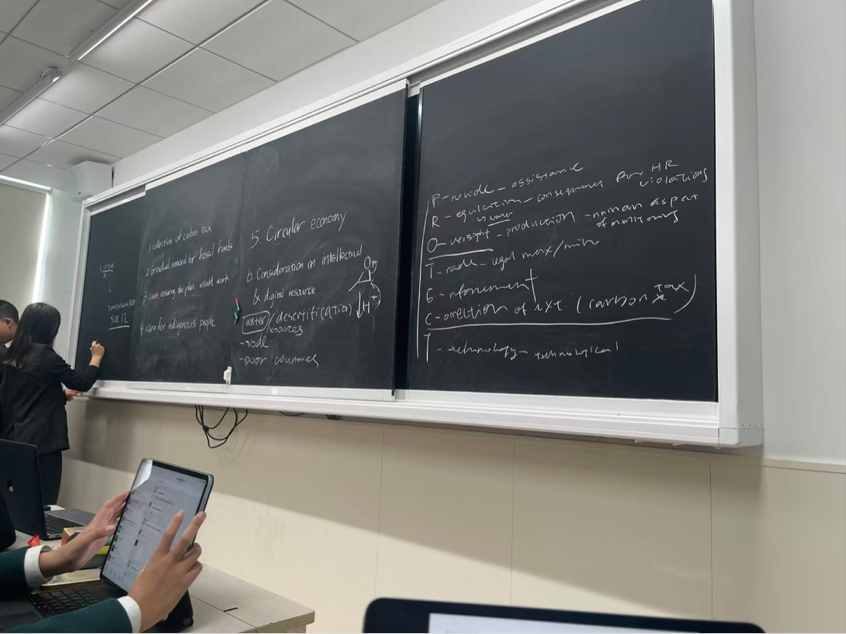 5x12
1 collection of carbon tax
2 Gradual removal for fossil fuels
3 ensuring the plan would work
4 care for indigenous people
5. Circular economy
6. Consideration on intellectual
& digital resource
water/desertification
resources
-poor countries
P-rovide - assistance
R-egulation - consequences for HR
violations
O-versight - production - human aspect
T-rade - legal max/min
E-nforcement
C-orrection of ext. (carbon tax)
T-echnology - technological